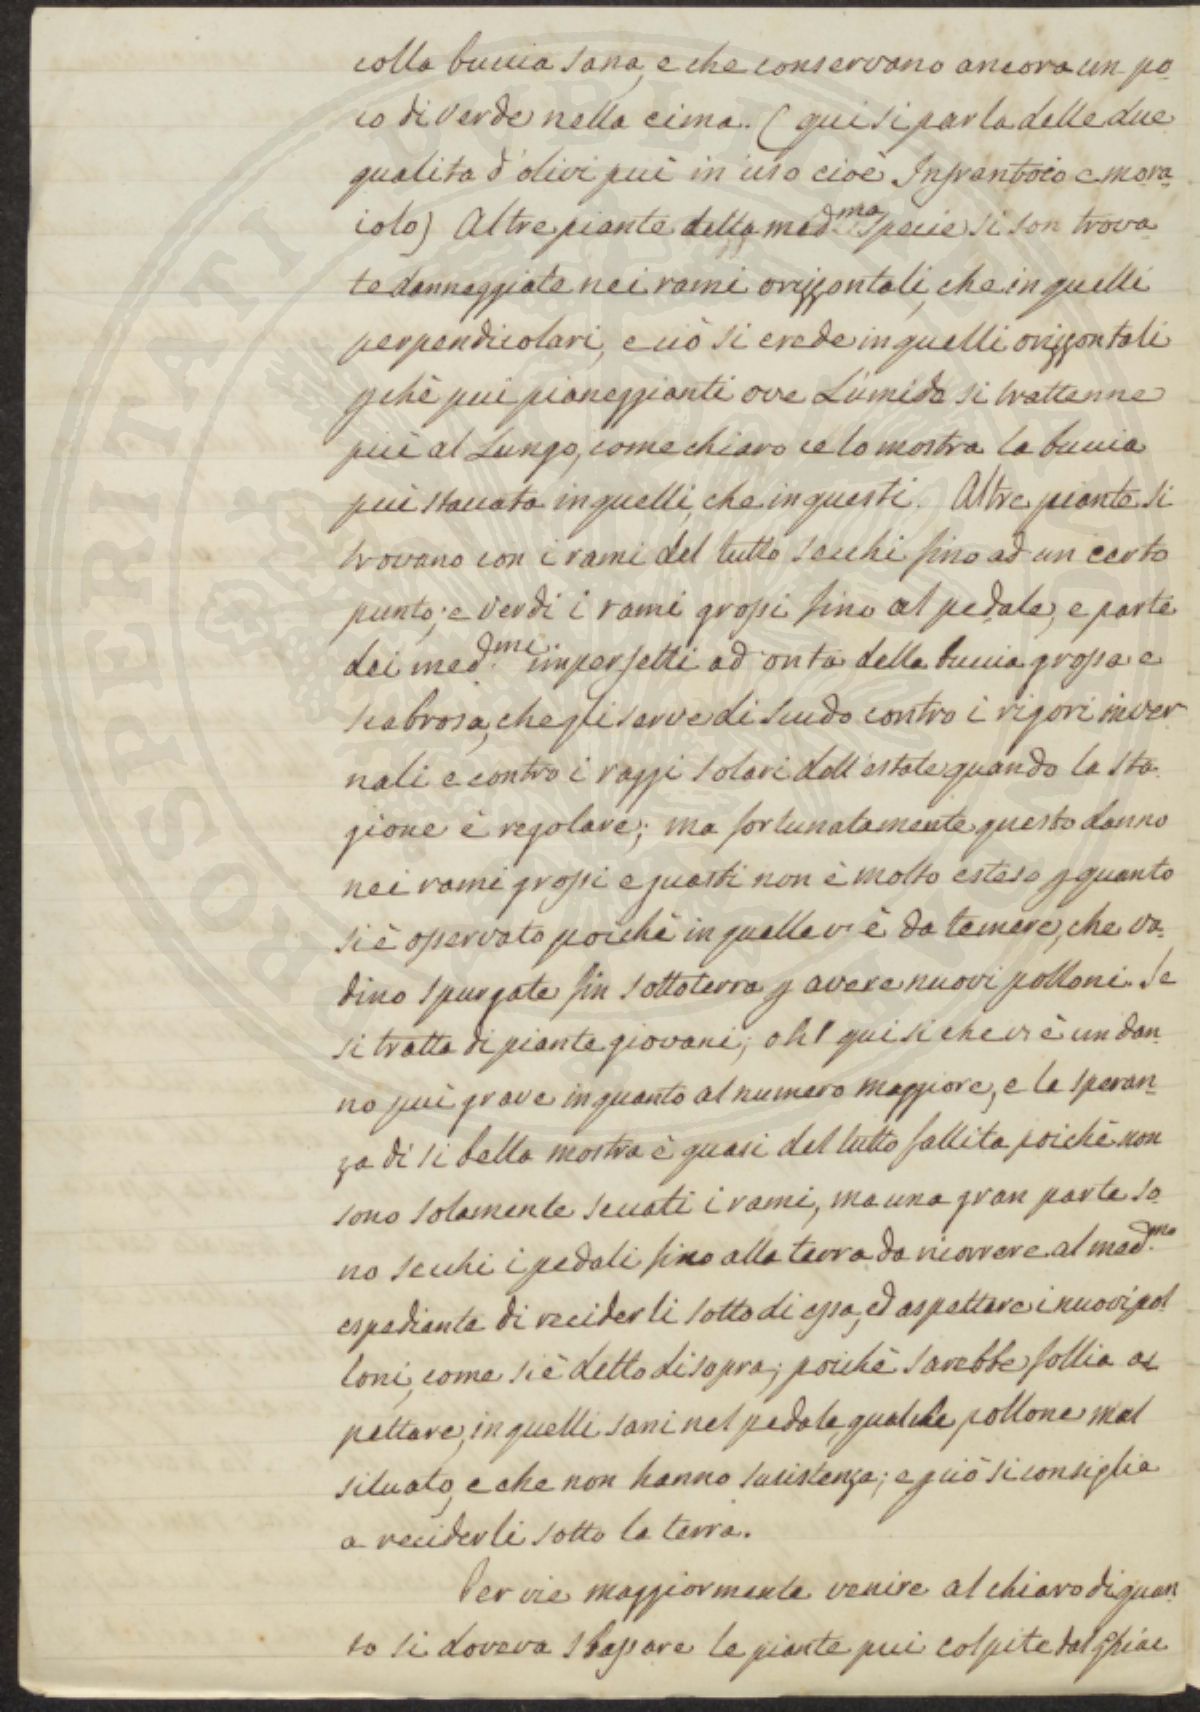 colla buccia sana, e che conservano ancora un po
co di verde nella cima. (qui si parla delle due
qualita d'olivi più in uso cioè Infrantoio e mora-
iolo) Altre piante della med.ma specie si son trova
te danneggiate nei rami orizzontali, che in quelli
perpendicolari, e ciò si crede in quelli orizzontali
pchè più pianeggianti ove L'umido si trattenne
più al Lungo, come chiaro ce lo mostra la buccia
più staccata in quelli, che in questi. Altre piante si
trovano con i rami del tutto secchi fino ad un certo
punto; e verdi i rami grossi fino al pedale, e parte
dei med.mi imperfetti ad onta della buccia grossa e
scabrosa, che gli serve di scudo contro i rigori inver
nali e contro i raggi solari dell'estate quando la sta
gione è regolare; ma fortunatamente questo danno
nei rami grossi e guasti non è molto esteso p quanto
si è osservato poichè in quelle vi è da temere, che va-
dino spurgate fin sottoterra p avere nuovi polloni. Se
si tratta di piante giovani, oh! qui si che vi è un dan-
no più grave in quanto al numero maggiore, e la speran-
za di si bella mostra è quasi del tutto fallita poichè non
sono solamente seccati i rami, ma una gran parte so-
no secchi i pedali fino alla terra da ricorrere al med.mo
espediente di reciderli sotto di essa, ed aspettare i nuovi pol
loni, come si è detto di sopra; poichè sarebbe follia as
pettare, in quelli sani nel pedale, qualche pollone mal
situato, e che non hanno susistenza; e p ciò si consiglia
a reciderli sotto la terra.
Per vie maggiormente venire al chiaro di quan-
to si doveva sbassare le piante più colpite dal ghiac
PROSPERITATI PUBLICAE